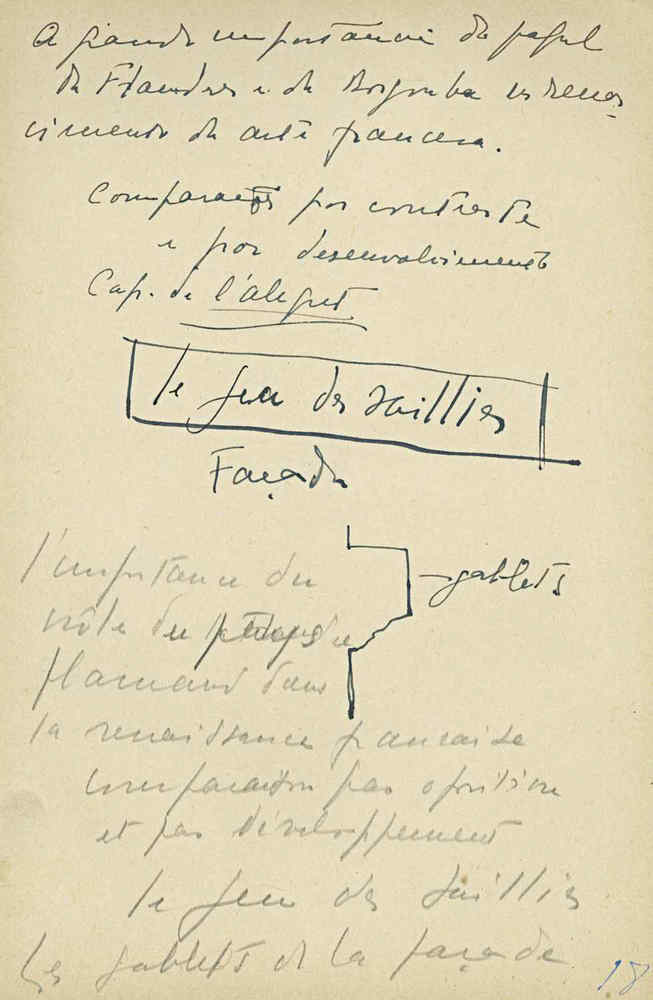 A grande importancia do papel
da Flandres e da Borgonha no renas
cimento da arte francesa.
Comparações por contraste
e por desenvolvimento
Cap. de l'aleget
le jeu des saillies
Façade
gablets
l'importance du
rôle du
flamand dans
la renaissance francaise
comparaison par oposition
et par développement
le jeu des saillies
les gablets de la façade
18